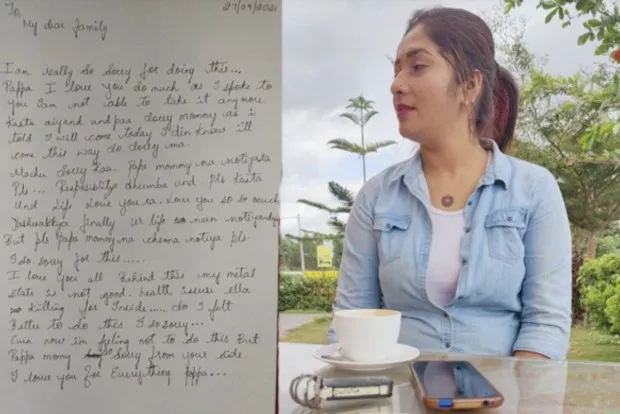 To,
27/09/2021
My dear Family
I am really so sorry for doing this...
Pappa I love you so much as I spoke to
you I am not able to take it anymore
Kasta aiyand una sorry mommy as i
told I will come today I din know i'll
come this way so sorry ma.
Machu sorry kaa papa mommy na
Pls... Responsiblity und pls kasta
Und life love you ra. love you so so much
finally ur life neen
But pls papa mommy na chenna notiye pls
I so sorry for this.....
I love you all Behind this my metal
state is not good. health issues ella
killing for Inside..... so I felt
Better to do this I so sorry...
Even now i'm feeling not to do this But
Pappa mommy sorry from your side
I love you for Everything pappa...